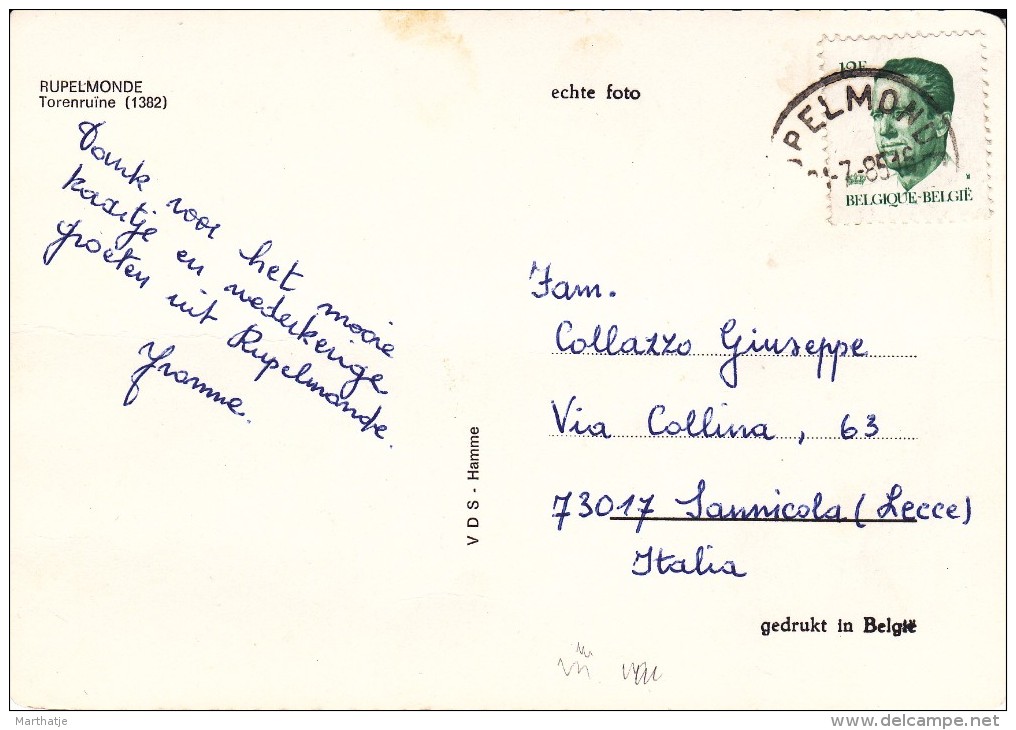 RUPELMONDE
Torenruïne (1382)
echte foto
12F
PELMOND
-7-85 16
BELGIQUE-BELGIË
Dank voor het mooie
kaartje en wederkerige
groeten uit Rupelmonde.
Yvonne.
Fam.
Collazzo Giuseppe
Via Collina, 63
73017 Sannicola (Lecce)
Italia
V D S - Hamme
gedrukt in België
Marthatje
www.delcampe.net